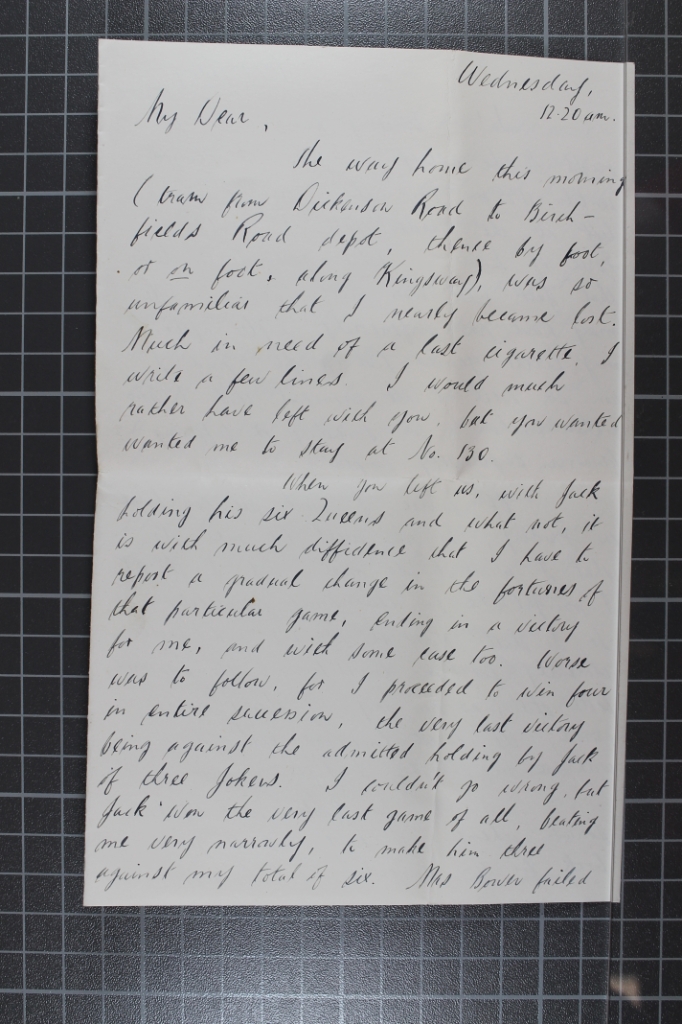 Wednesday,
12.20 am.
My Dear,
The way home this morning
(tram from Dickenson Road to Birch-
fields Road depot, thence by foot,
or on foot, along Kingsway), was so
unfamiliar that I nearly became lost.
Much in need of a last cigarette, I
write a few lines. I would much
rather have left with you, but you wanted
wanted me to stay at No. 130.
When you left us, with Jack
holding his six Queens and what not, it
is with much diffidence that I have to
report a gradual change in the fortunes of
that particular game, ending in a victory
for me, and with some ease too. Worse
was to follow, for I proceeded to win four
in entire succession, the very last victory
being against the admitted holding by Jack
of three Jokers. I couldn't go wrong, but
Jack won the very last game of all, beating
me very narrowly, to make him three
against my total of six. Mrs Bower failed